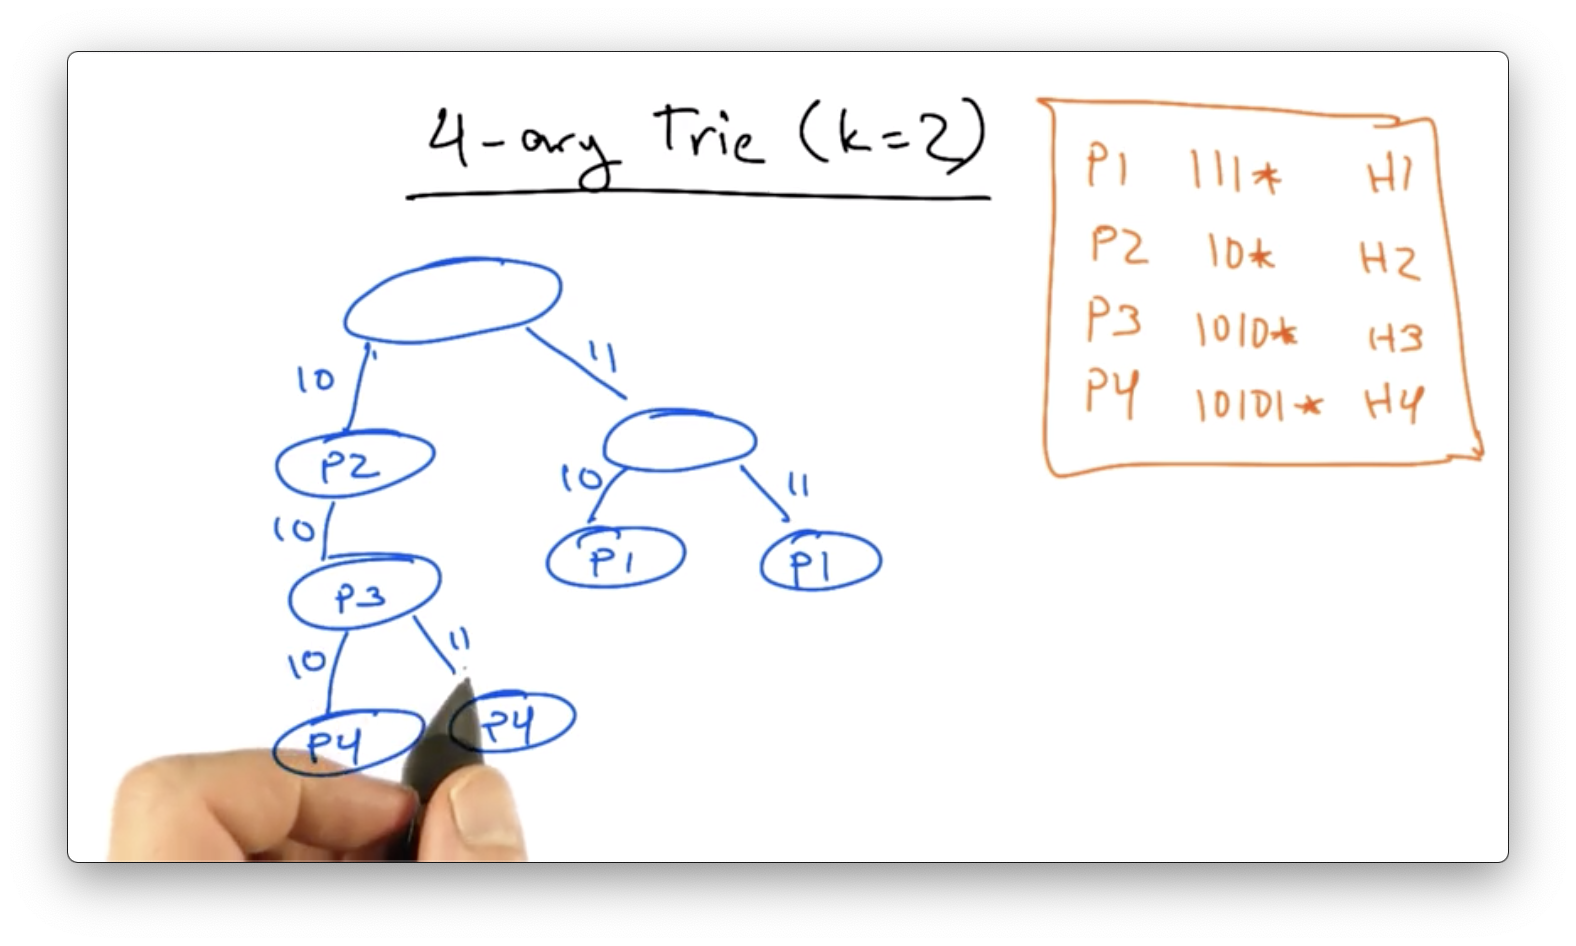 4-ary Trie (k=2)
P1 111* H1
P2 10* H2
P3 1010* H3
P4 10101* H4
10
11
P2
10
11
10
P1
P1
P3
10
11
P4
P4